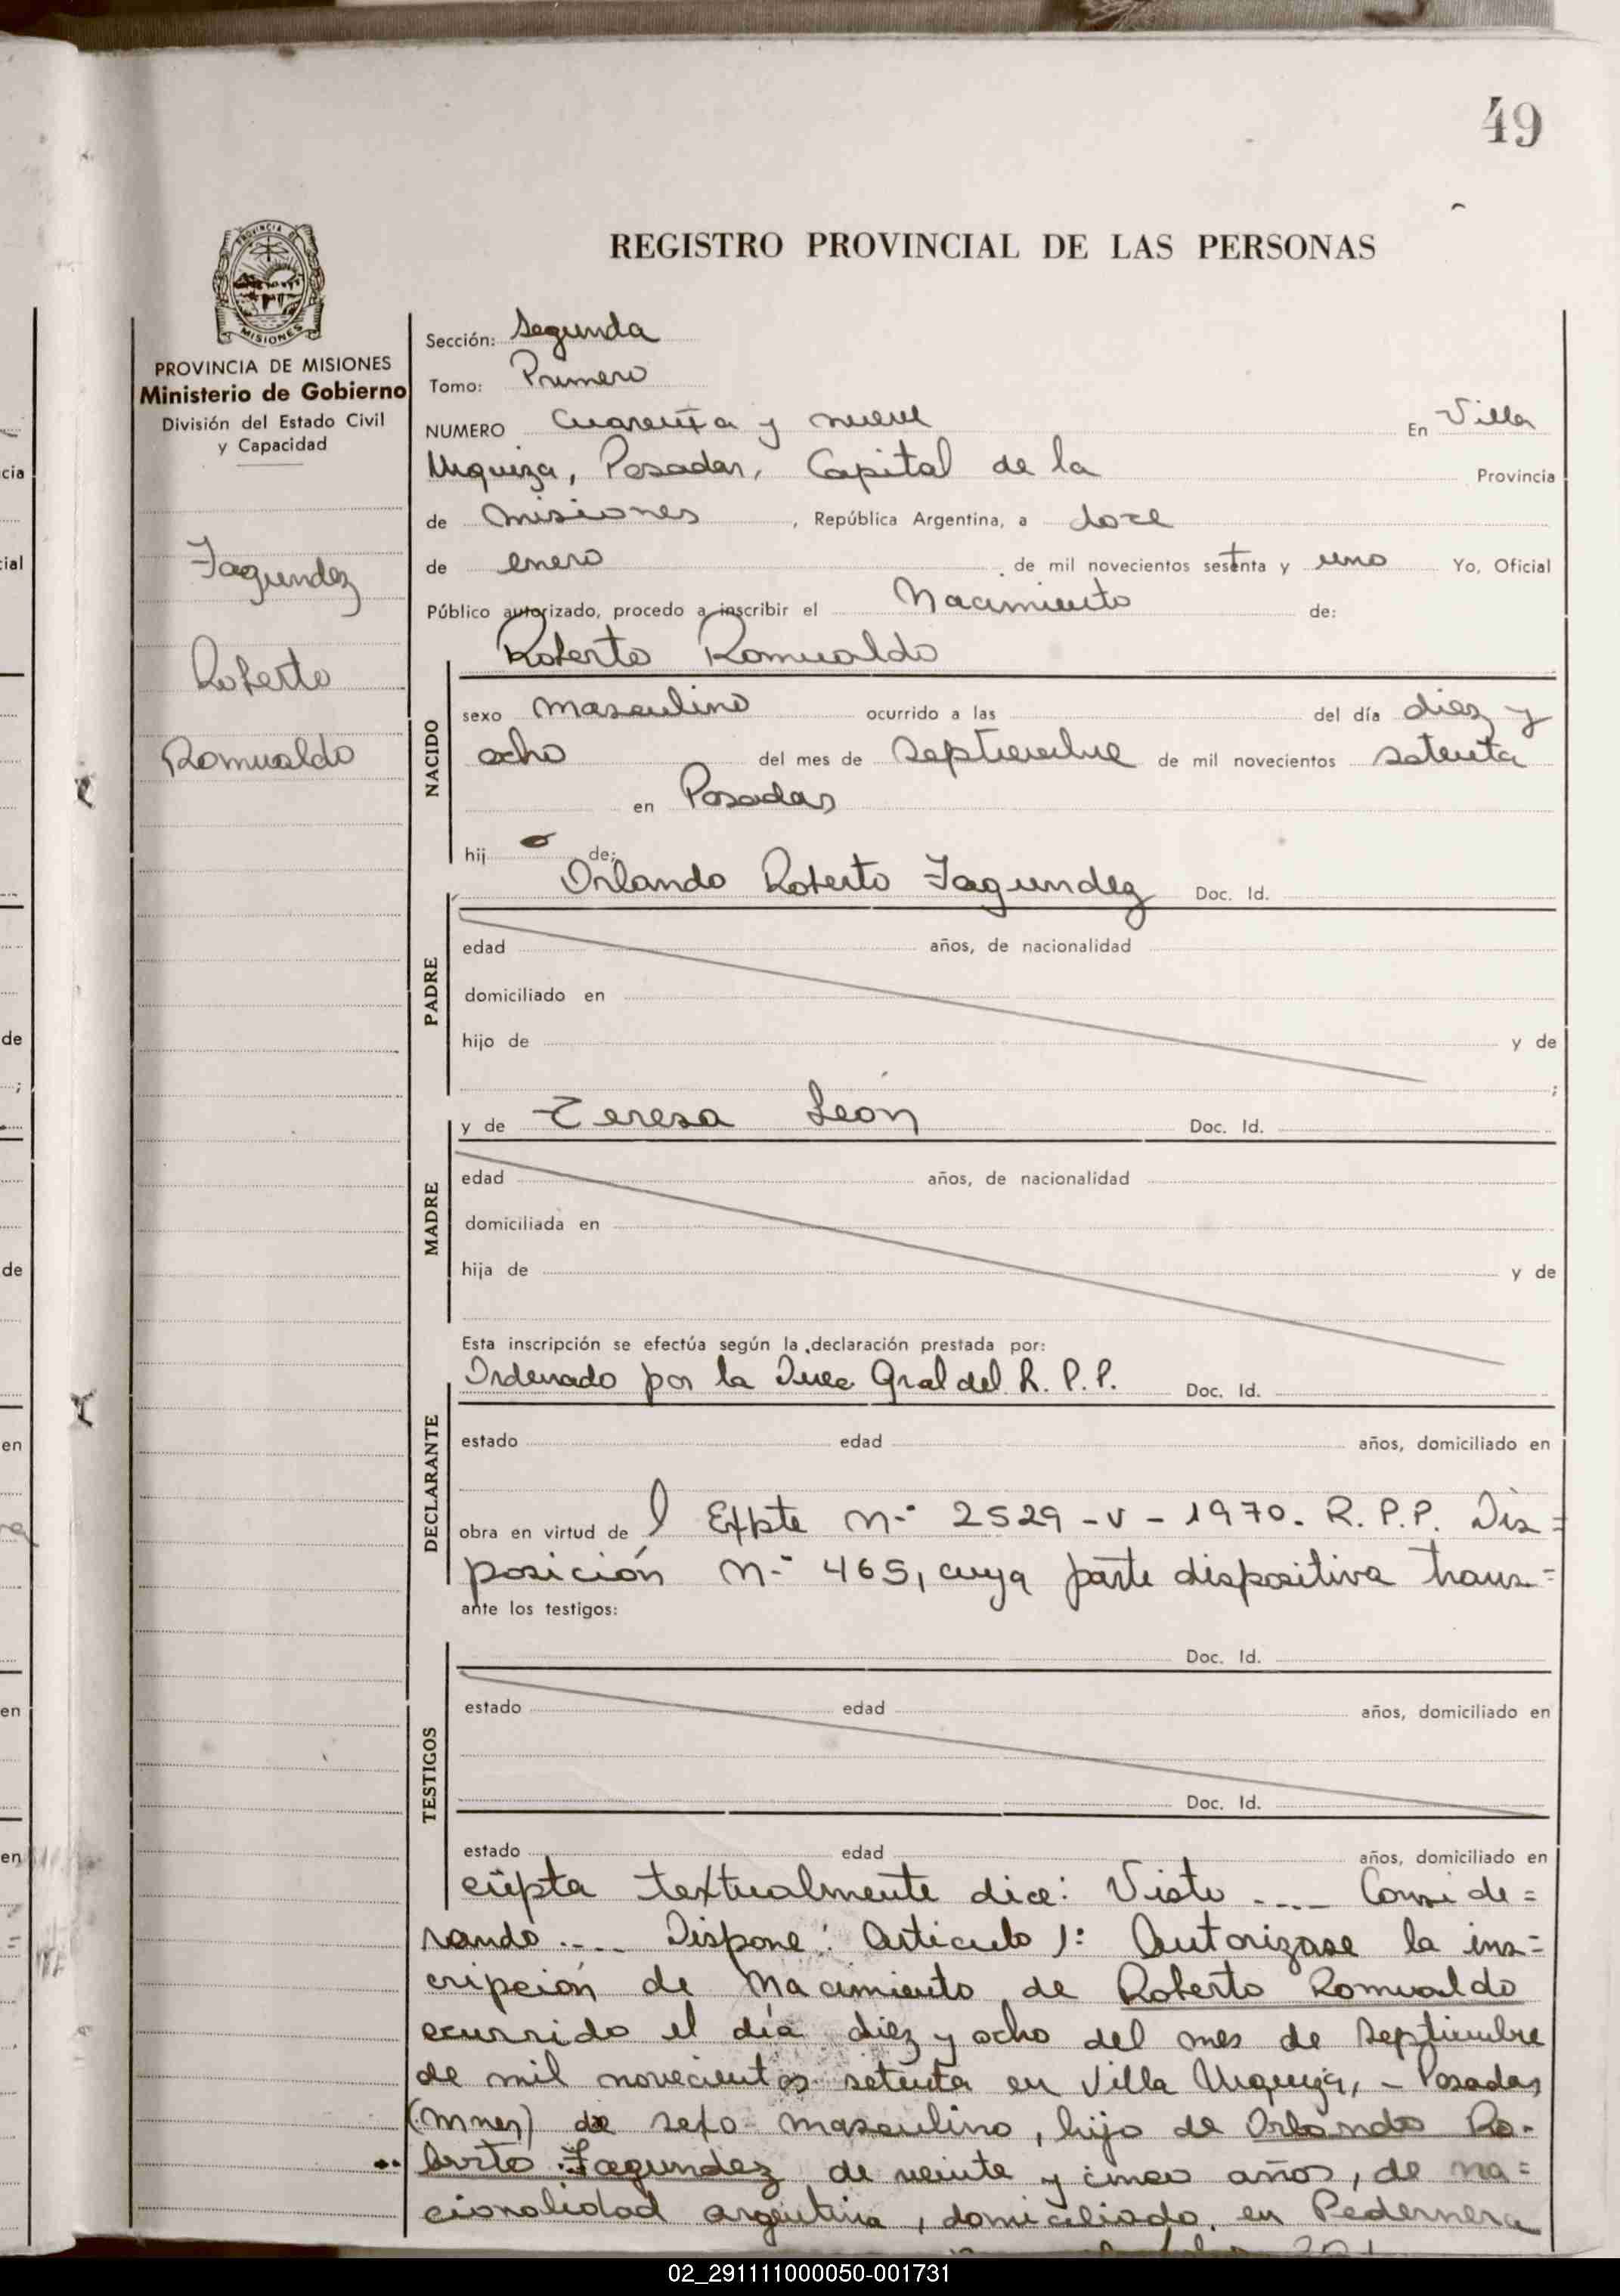 49
REGISTRO PROVINCIAL DE LAS PERSONAS
PROVINCIA DE
MISIONES
PROVINCIA DE MISIONES
Ministerio de Gobierno
División del Estado Civil
y Capacidad
Fagundez
Roberto
Romualdo
Sección: Segunda
Tomo: Primero
NUMERO Cuarenta y nueve En Villa
Urquiza, Posadas, Capital de la Provincia
de Misiones, República Argentina, a doce
de enero de mil novecientos sesenta y uno Yo, Oficial
Público autorizado, procedo a inscribir el Nacimiento de:
Roberto Romualdo
NACIDO
sexo masculino ocurrido a las del día diez y
ocho del mes de Septiembre de mil novecientos setenta
en Posadas
hij o de:
Orlando Roberto Fagundez Doc. Id.
PADRE
edad años, de nacionalidad
domiciliado en
hijo de y de
;
y de Teresa León Doc. Id.
MADRE
edad años, de nacionalidad
domiciliada en
hija de y de
Esta inscripción se efectúa según la declaración prestada por:
Ordenado por la Direc Gral del R. P. P. Doc. Id.
DECLARANTE
estado edad años, domiciliado en
obra en virtud de l Expte N.º 2529-V-1970. R.P.P. Dis=
posición N.º 465, cuya parte dispositiva trans=
ante los testigos:
Doc. Id.
TESTIGOS
estado edad años, domiciliado en
Doc. Id.
estado edad años, domiciliado en
cripta textualmente dice: Visto .... Conside=
rando .... Dispone: Articulo 1: Autorizase la ins=
cripción de Nacimiento de Roberto Romualdo
ocurrido el día diez y ocho del mes de Septiembre
de mil novecientos setenta en Villa Urquiza, - Posadas
(Mnes) de sexo masculino, hijo de Orlando Ro-
berto Fagundez de veinte y cinco años, de na=
cionalidad argentina, domiciliado en Pedernera
cia
cial
de
;
de
en
en
en
02_291111000050-001731